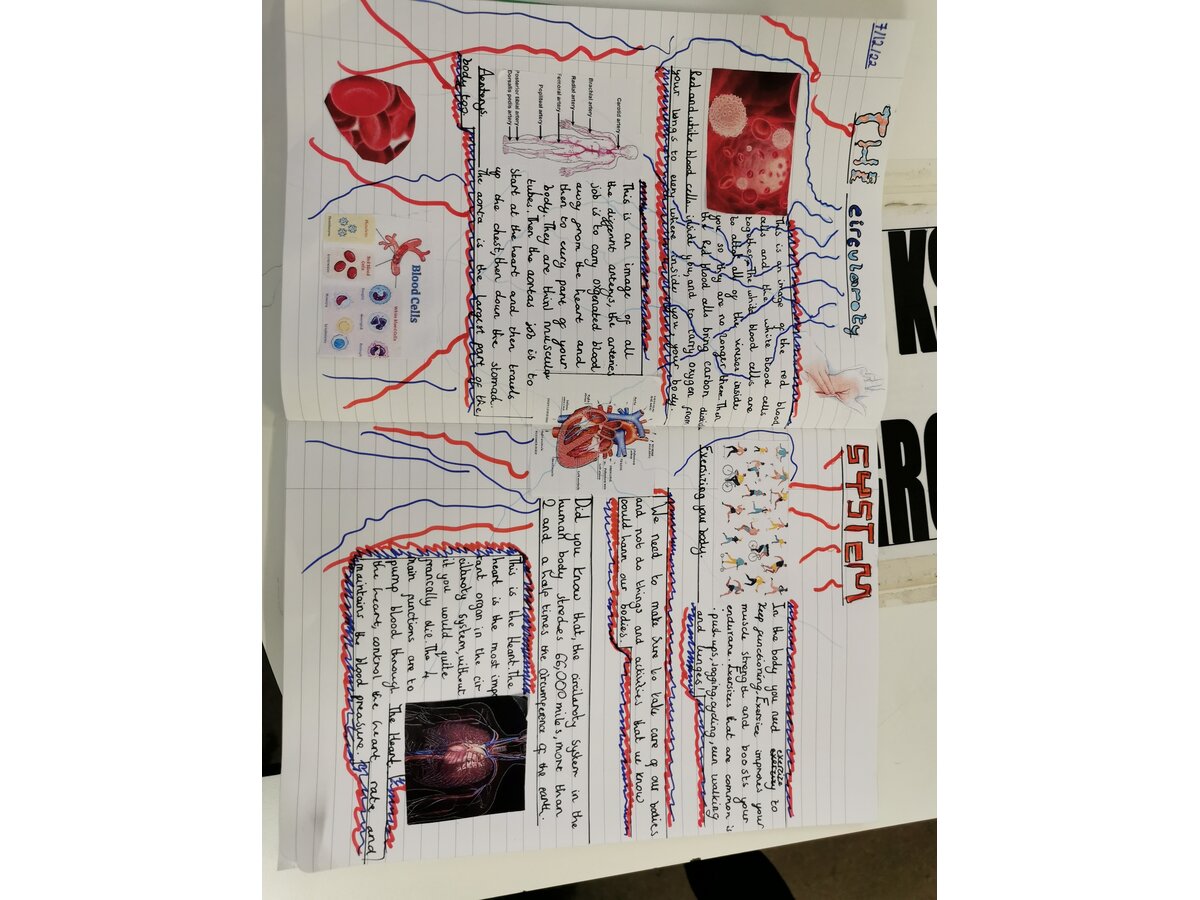 7/12/22
THE circularoty
SYSTEM
This is an image of the red blood
cells and the white blood cells
together. The white blood cells are
to attack all of the viruses inside
you so they are no longer there. Then
the red blood cells bring carbon dioxide
Red and white blood cells inside you, and to carry oxygen from
your lungs to everywhere inside you, your body.
Carotid artery
Brachial artery
Radial artery
Femoral artery
Popliteal artery
Posterior tibial artery
Dorsalis pedis artery
Aenterys.
This is an image of all
the different arterys, the arteries
job is to carry oxgenated blood
away from the heart and
then to every part of your
body. They are thin/ muscular
tubes. Then the aortas job is to
start at the heart and then travels
up the chest, then down the stomach.
The aorta is the largest part of the
body too.
Blood Cells
Platelets
Red Blood Cells
White Blood Cells
In the body you need exercise to
keep functioning. Exercise improves your
muscle strength and boosts your
endurance. Exercizes that are common is
push ups, jogging, cycling, even walking
and lunges!
Exersizing your body.
We need to make sure to take care of our bodies
and not do things and activities that we know
could harm our bodies.
Did you know that, the circilanoty system in the
human body streches 66,000 miles, more than
2 and a half times the circumference of the earth.
This is the Heart. The
heart is the most imp
tant organ in the cir
cilanoty system, without
it you would quite
franically die. The 4
main functions are to
pump blood through
The Heart
the heart, control the heart rate and
maintain the blood preasure.
KS
ARC